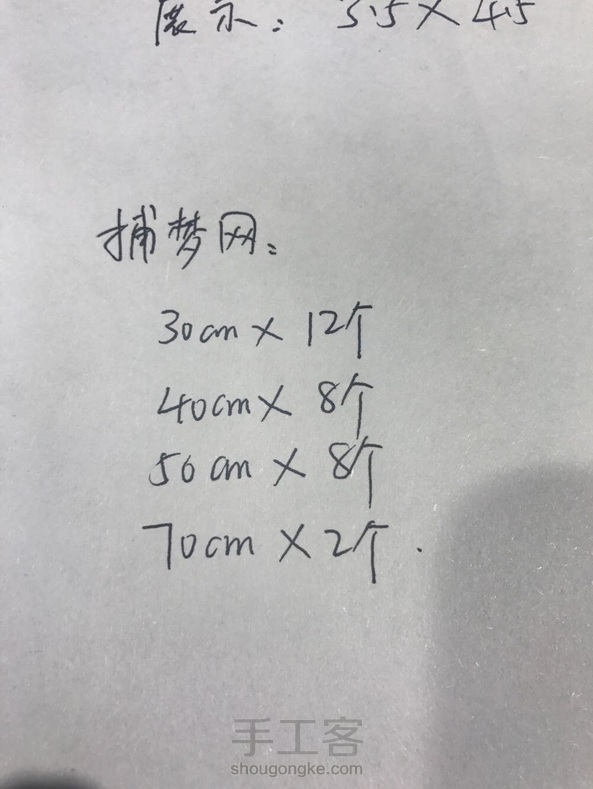 展示：3.5×4.5
捕梦网：
30cm×12个
40cm×8个
50cm×8个
70cm×2个.
手工客
shougongke.com